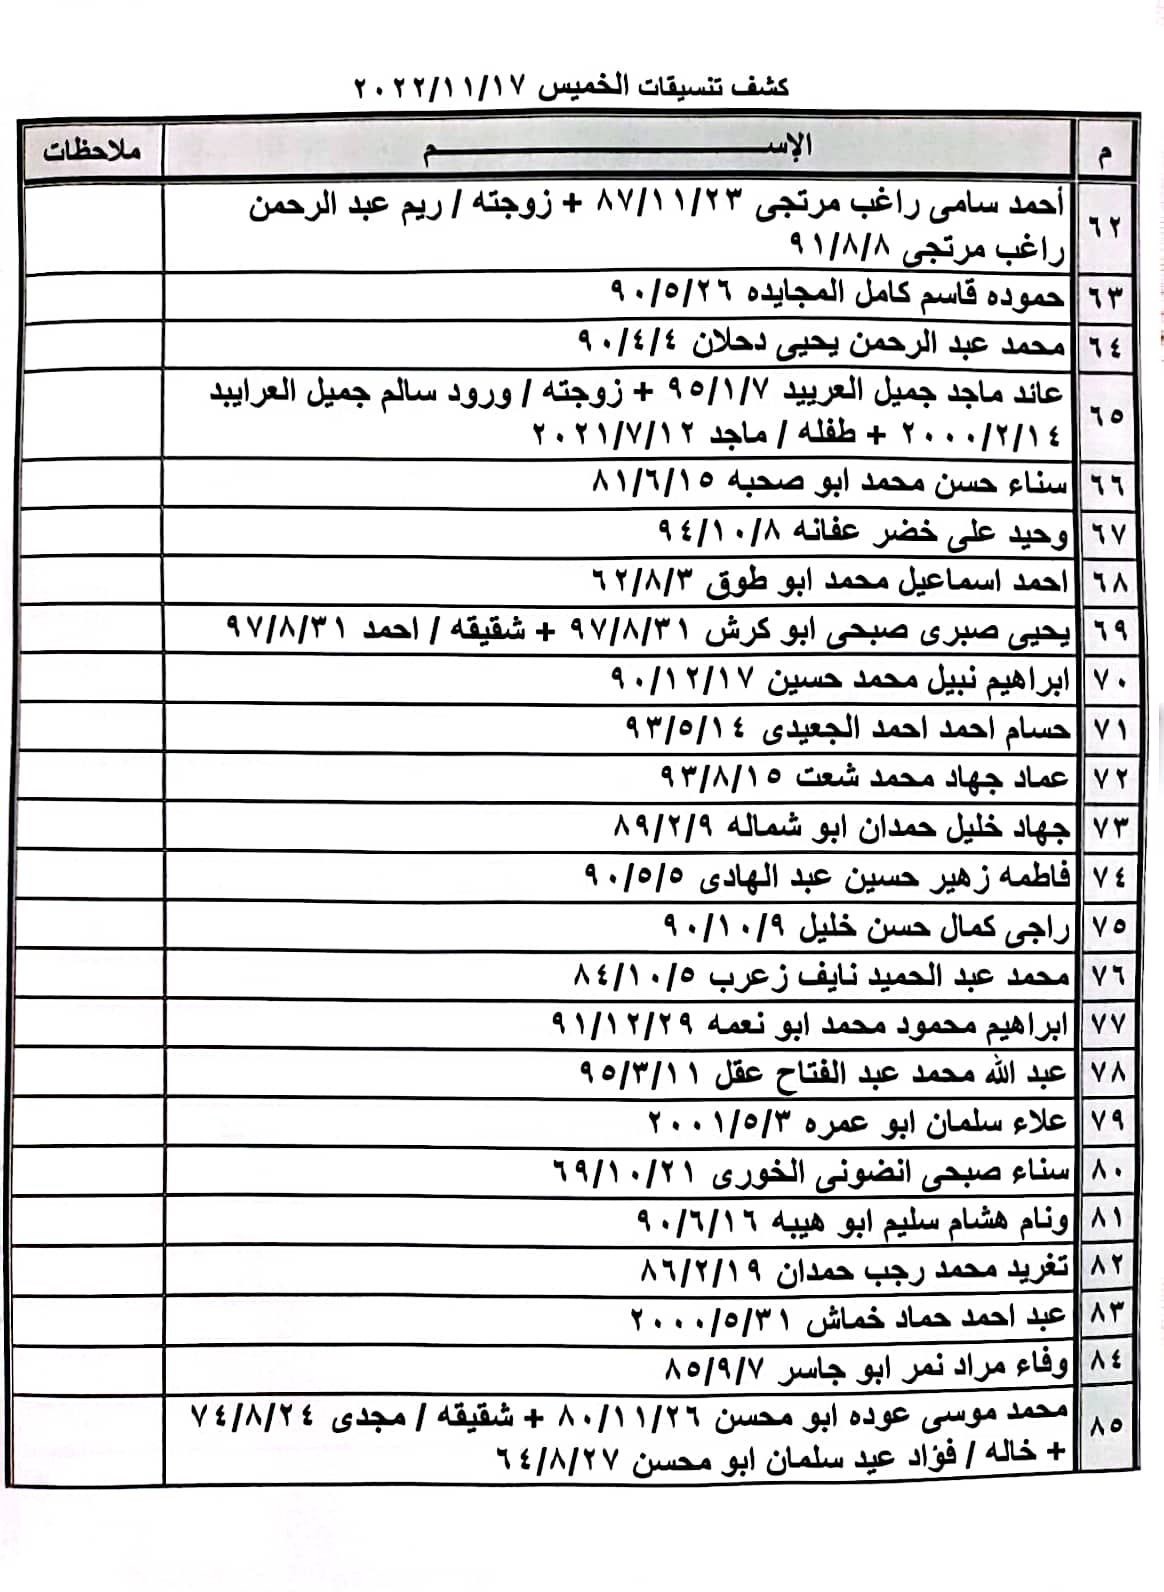 كشف تنسيقات الخميس ٢٠٢٢/١١/١٧
م الإســـــم ملاحظات
٦٢ أحمد سامى راغب مرتجى ٨٧/١١/٢٣ + زوجته / ريم عبد الرحمن
راغب مرتجى ٩١/٨/٨
٦٣ حموده قاسم كامل المجايده ٩٠/٥/٢٦
٦٤ محمد عبد الرحمن يحيى دحلان ٩٠/٤/٤
٦٥ عائد ماجد جميل العرييد ٩٥/١/٧ + زوجته / ورود سالم جميل العرايبد
٢٠٠٠/٢/١٤ + طفله / ماجد ٢٠٢١/٧/١٢
٦٦ سناء حسن محمد ابو صحبه ٨١/٦/١٥
٦٧ وحيد على خضر عفانه ٩٤/١٠/٨
٦٨ احمد اسماعيل محمد ابو طوق ٦٢/٨/٣
٦٩ يحيى صبرى صبحى ابو كرش ٩٧/٨/٣١ + شقيقه / احمد ٩٧/٨/٣١
٧٠ ابراهيم نبيل محمد حسين ٩٠/١٢/١٧
٧١ حسام احمد احمد الجعيدى ٩٣/٥/١٤
٧٢ عماد جهاد محمد شعت ٩٣/٨/١٥
٧٣ جهاد خليل حمدان ابو شماله ٨٩/٢/٩
٧٤ فاطمه زهير حسين عبد الهادى ٩٠/٥/٥
٧٥ راجى كمال حسن خليل ٩٠/١٠/٩
٧٦ محمد عبد الحميد نايف زعرب ٨٤/١٠/٥
٧٧ ابراهيم محمود محمد ابو نعمه ٩١/١٢/٢٩
٧٨ عبد الله محمد عبد الفتاح عقل ٩٥/٣/١١
٧٩ علاء سلمان ابو عمره ٢٠٠١/٥/٣
٨٠ سناء صبحى انضونى الخورى ٦٩/١٠/٢١
٨١ ونام هشام سليم ابو هيبه ٩٠/٦/١٦
٨٢ تغريد محمد رجب حمدان ٨٦/٢/١٩
٨٣ عبد احمد حماد خماش ٢٠٠٠/٥/٣١
٨٤ وفاء مراد نمر ابو جاسر ٨٥/٩/٧
٨٥ محمد موسى عوده ابو محسن ٨٠/١١/٢٦ + شقيقه / مجدى ٧٤/٨/٢٤
+ خاله / فؤاد عيد سلمان ابو محسن ٦٤/٨/٢٧